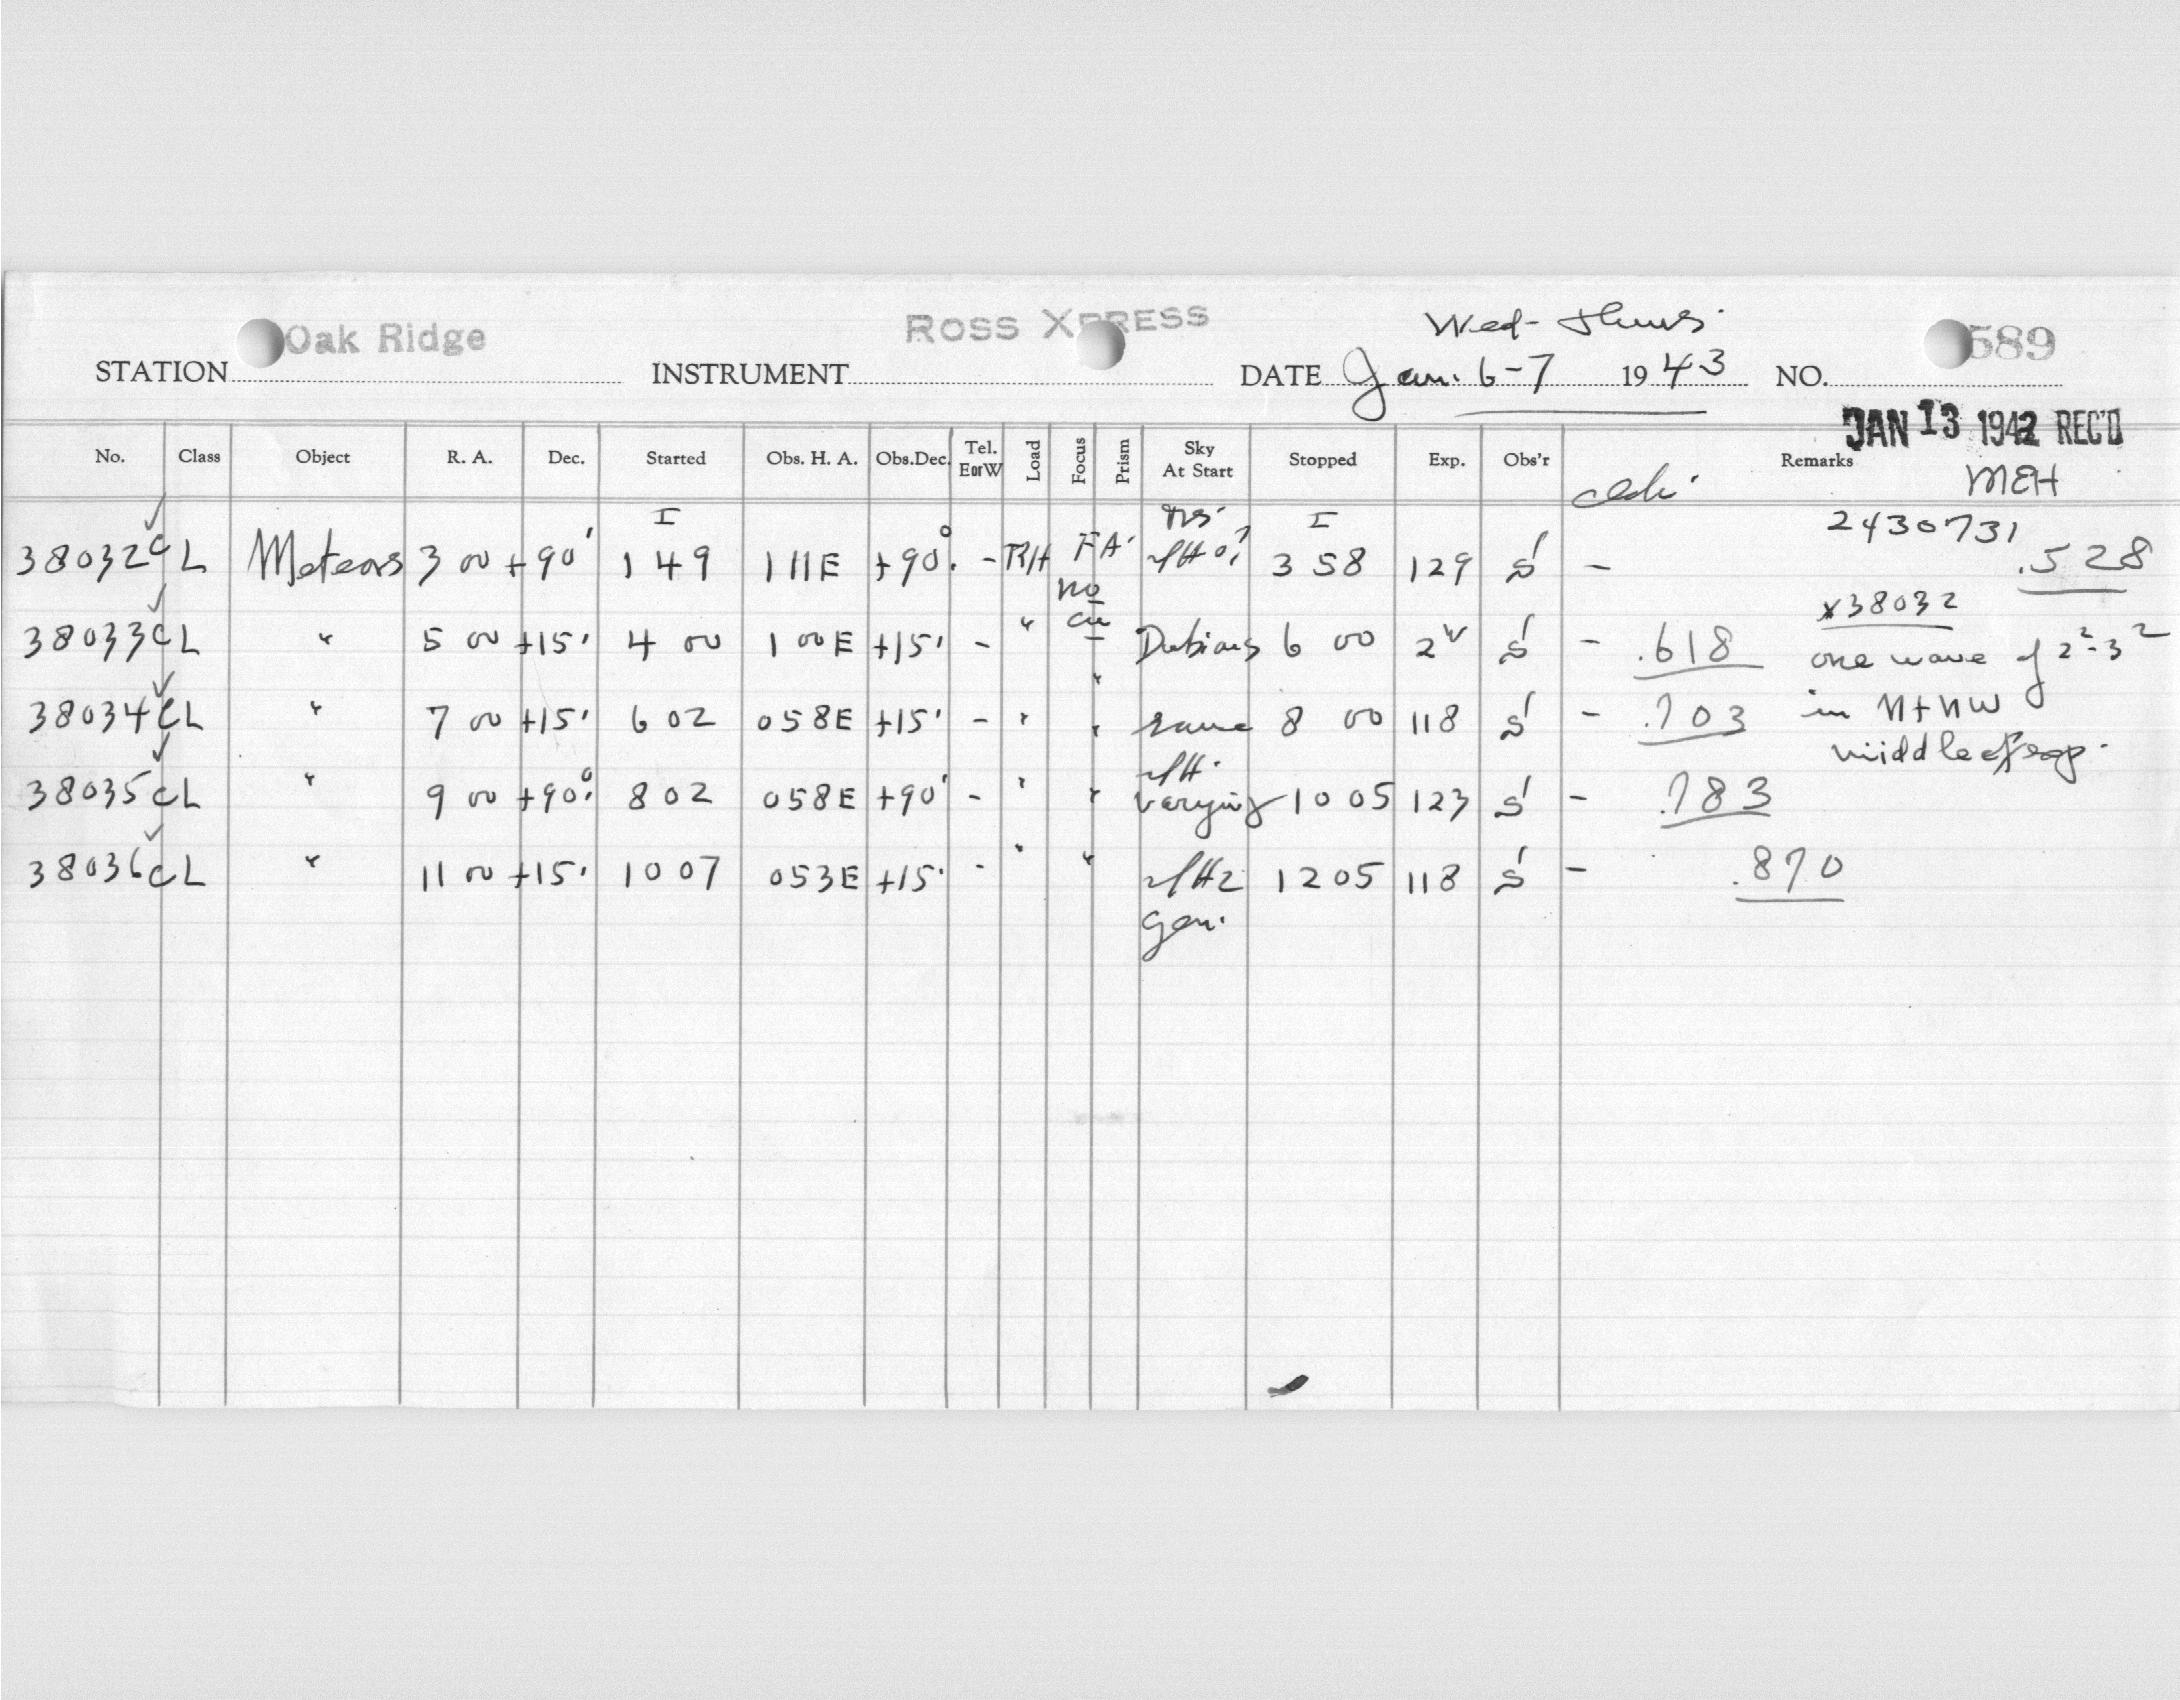 Oak Ridge ROSS XPRESS Wed - Thurs. 589
STATION INSTRUMENT DATE Jan. 6-7 1943 NO.
JAN 13 1942 REC'D
No. Class Object R. A. Dec. Started Obs. H. A. Obs.Dec. Tel. EorW Load Focus Prism Sky At Start Stopped Exp. Obs'r Remarks
MEH
I I 2430731
38032 C L Meteors 3 00 +90° 1 49 1 11E +90° - RH FA. 3 58 129 S - .528
no x38032
38033 C L " 5 00 +15° 4 00 1 00E +15° - " Dubious 6 00 2 S - .618 one wave of 2²-3²
38034 C L " 7 00 +15° 6 02 0 58E +15° - " " same 8 00 118 S - .703 in N+NW
middle of exp.
38035 C L " 9 00 +90° 8 02 0 58E +90° - " " varying 10 05 123 S - .783
38036 C L " 11 00 +15° 10 07 0 53E +15° - " " 12 05 118 S - .870
gen.